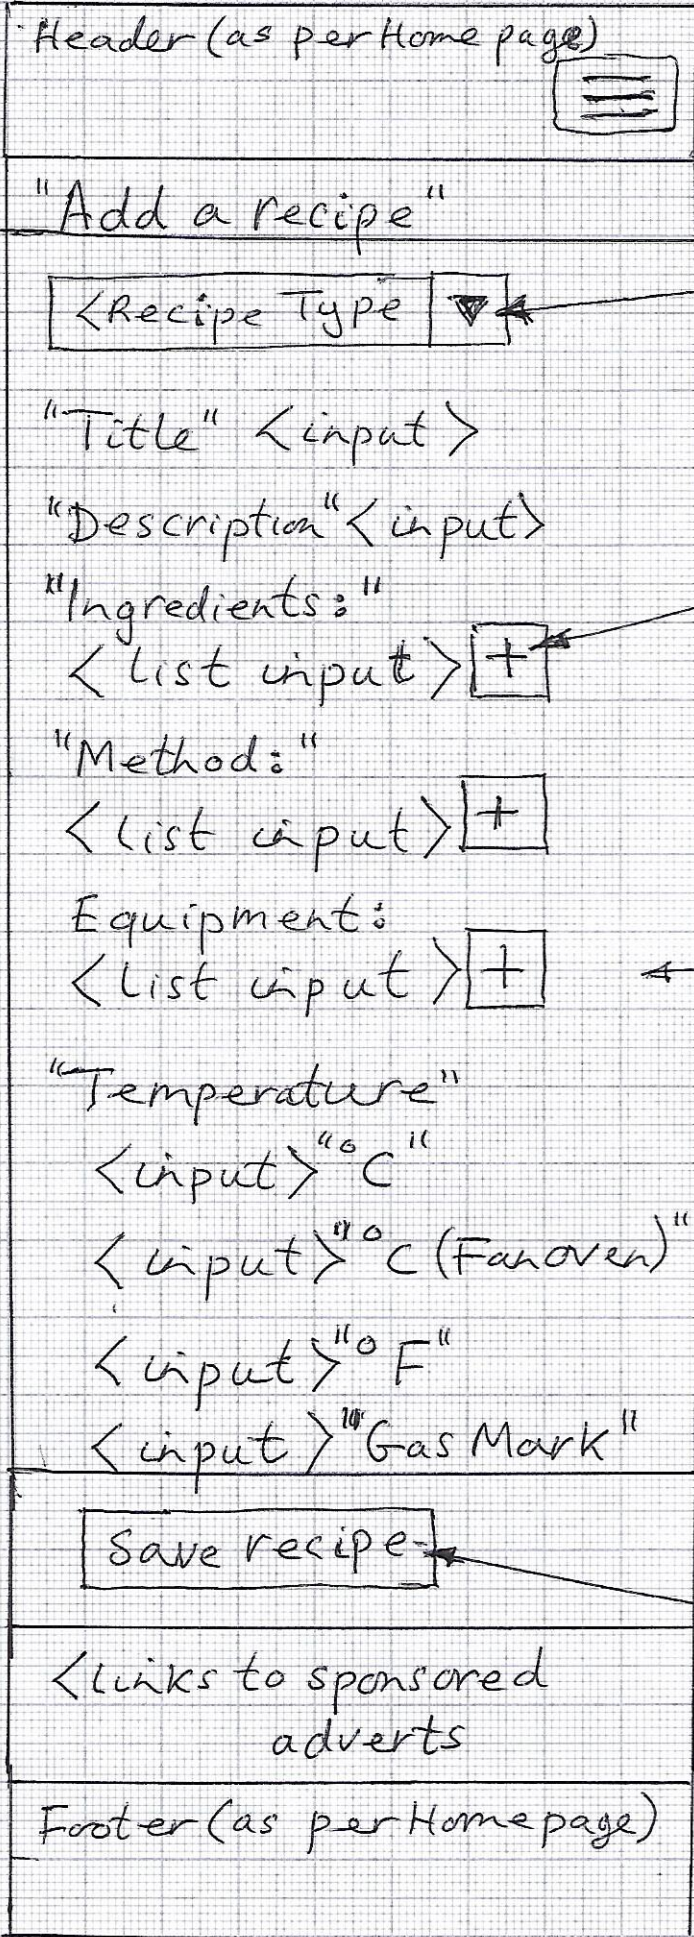 Header (as per Home page)
"Add a recipe"
<Recipe Type
"Title" <input>
"Description" <input>
"Ingredients:"
<list input> +
"Method:"
<list input> +
Equipment:
<list input> +
"Temperature"
<input> "°C"
<input> "°C (Fan oven)"
<input> "°F"
<input> "Gas Mark"
Save recipe
<links to sponsored
adverts
Footer (as per Home page)